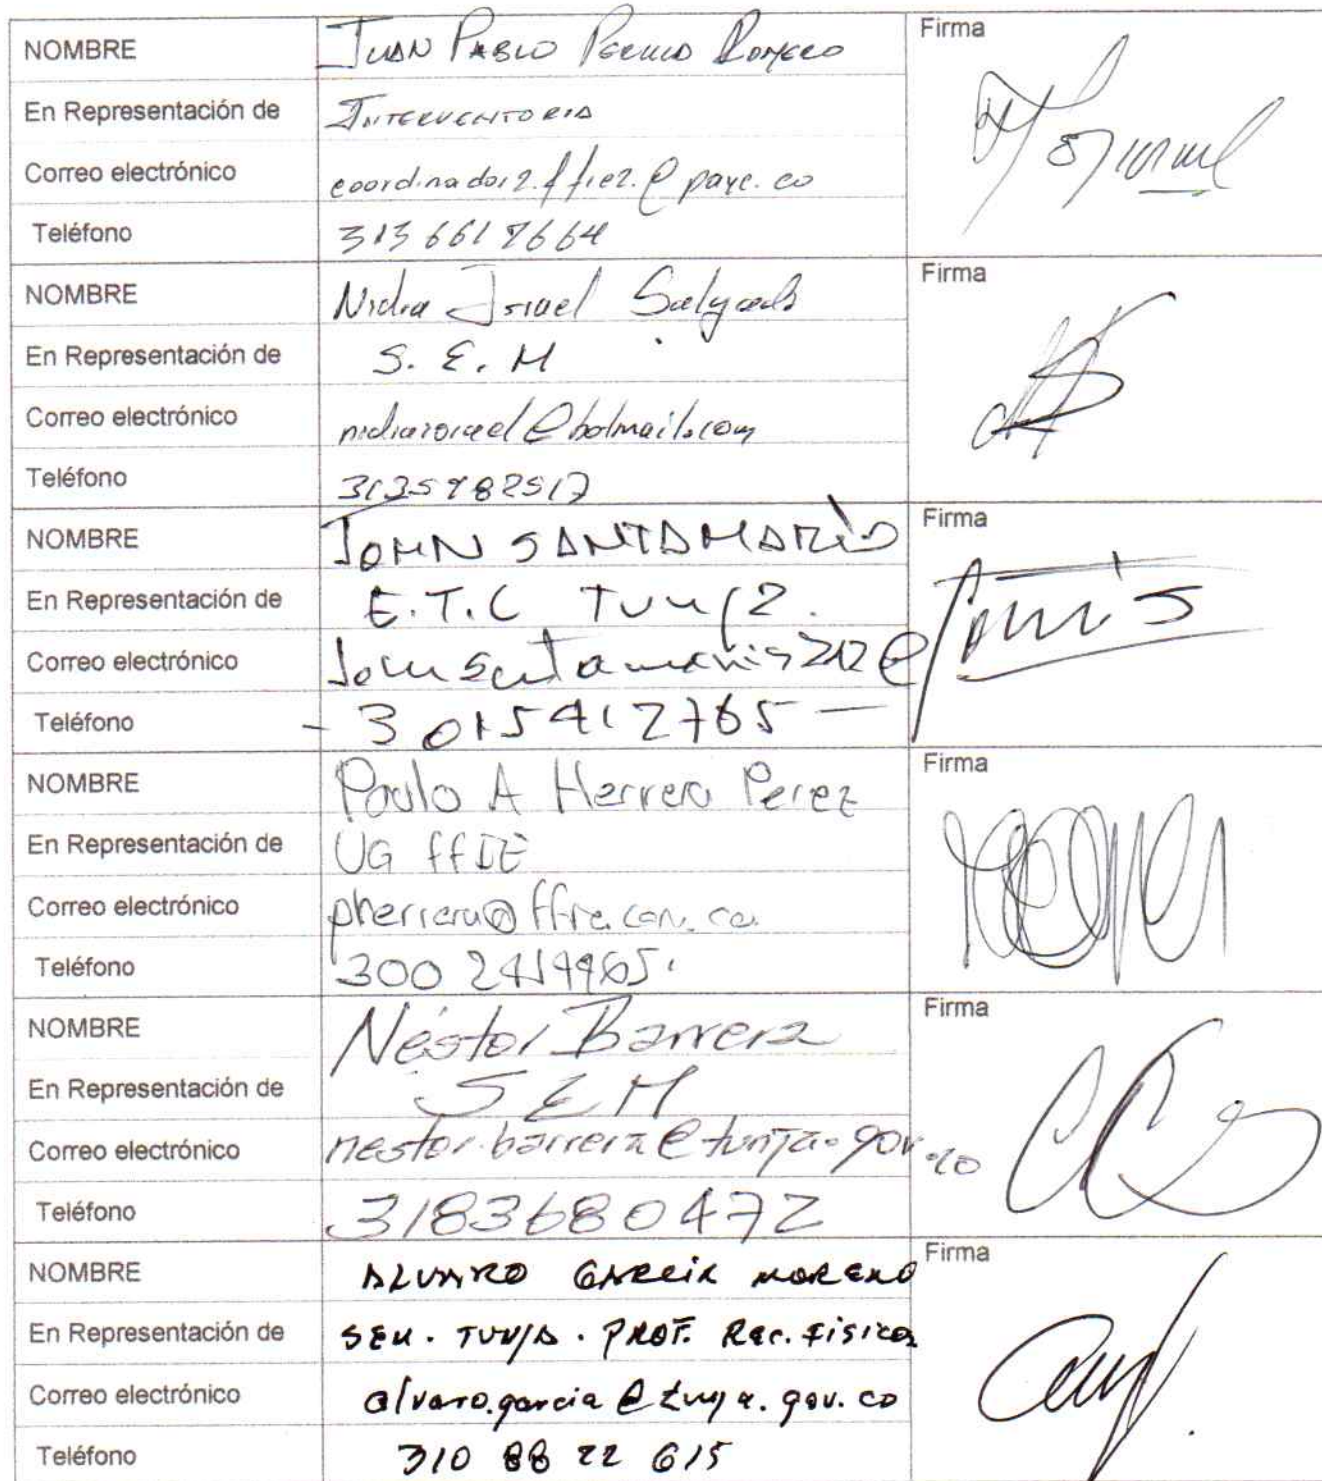 NOMBRE JUAN PABLO ROMERO Firma
En Representación de INTERVENTORIA
Correo electrónico coordinador2.ffie2.@payc.co
Teléfono 3136617664
NOMBRE Nidia Salgado Firma
En Representación de S. E. M
Correo electrónico @hotmail.com
Teléfono
NOMBRE JOHN SANTAMARÍA Firma
En Representación de E.T.C
Correo electrónico
Teléfono - 3015412765 -
NOMBRE Paulo A Herrera Perez Firma
En Representación de UG ffIE
Correo electrónico pherrera@ffie.com.co
Teléfono 300
NOMBRE Néstor Barrera Firma
En Representación de SEM
Correo electrónico nestor.barrera@tunja.gov.co
Teléfono 3183680472
NOMBRE ALVARO GARCIA MORENO Firma
En Representación de SEM. TUNJA. PROF. Rec. Fisicos
Correo electrónico alvaro.garcia@tunja.gov.co
Teléfono 310 88 22 615